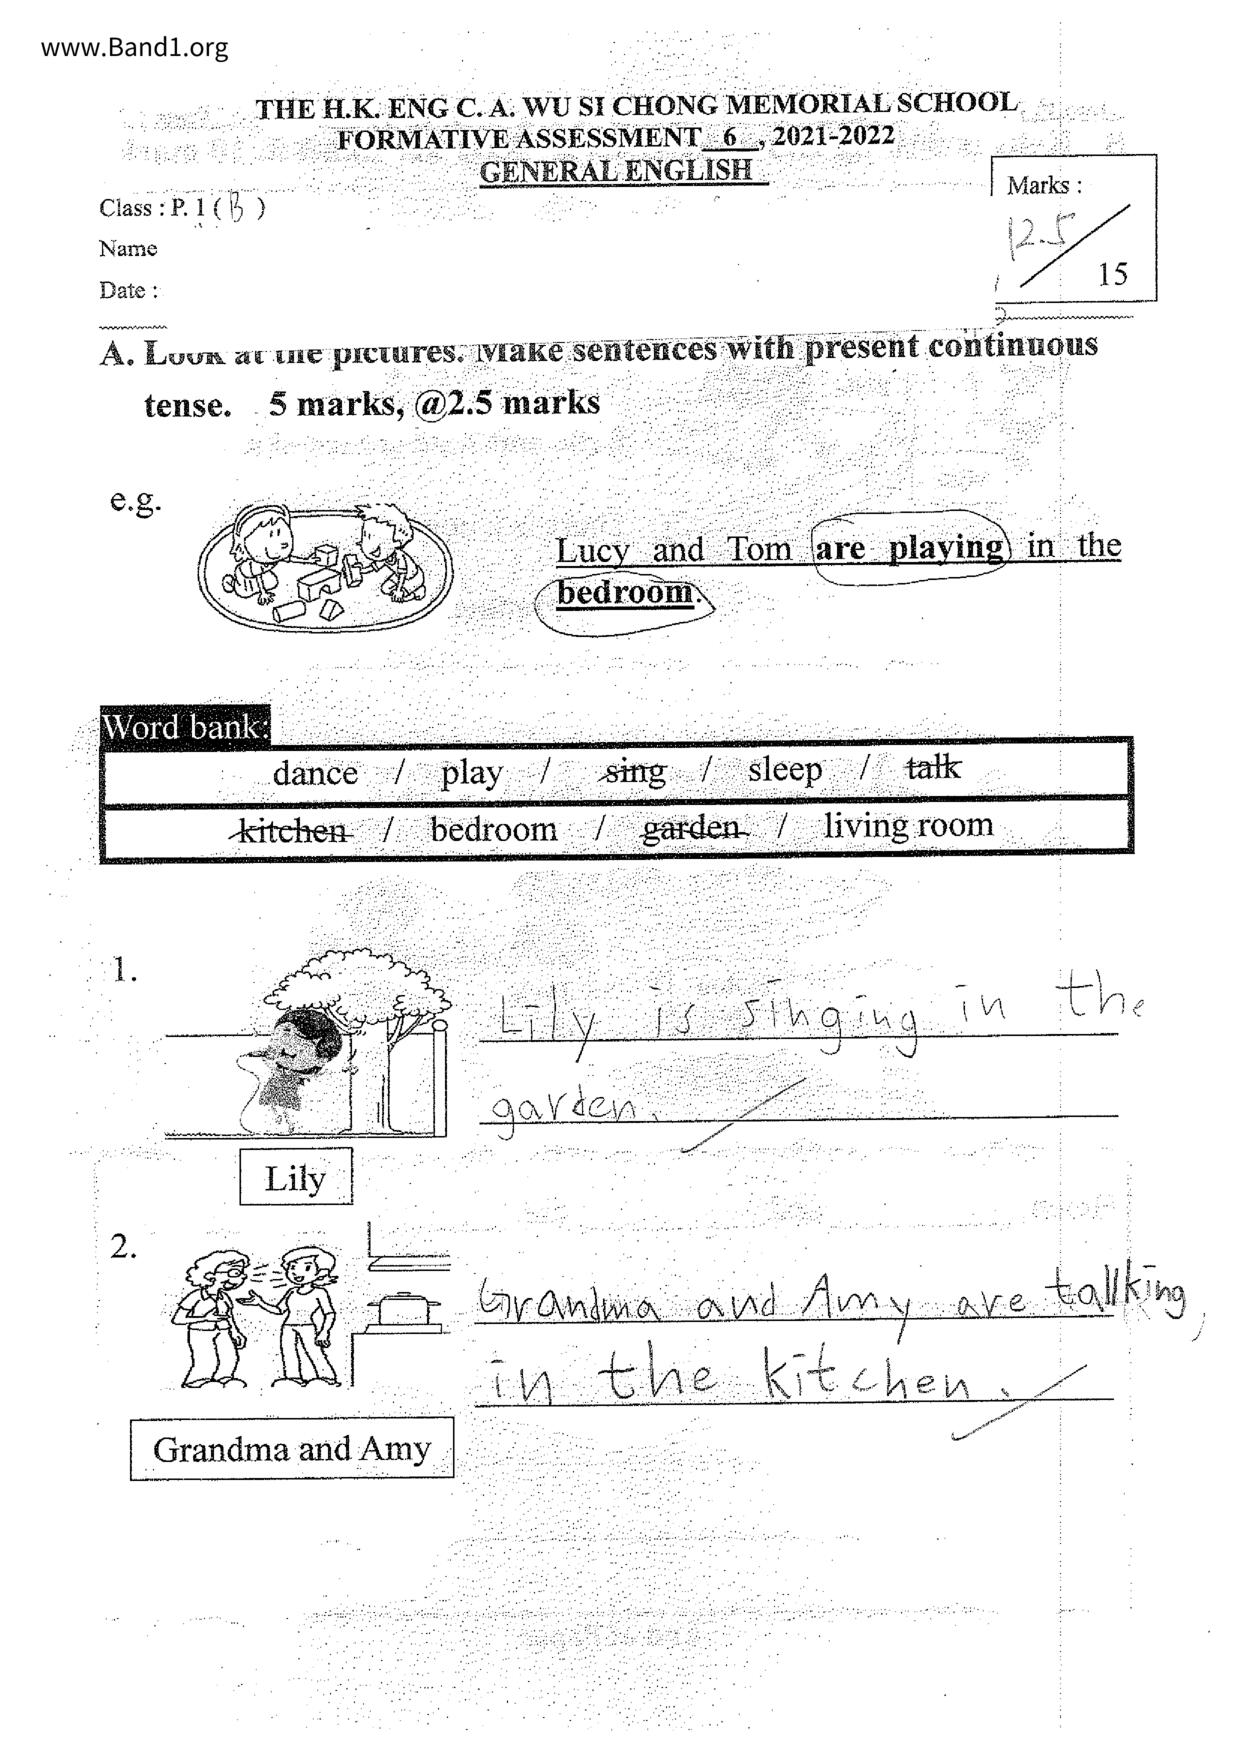 www.Band1.org
THE H.K. ENG C. A. WU SI CHONG MEMORIAL SCHOOL
FORMATIVE ASSESSMENT 6 , 2021-2022
GENERAL ENGLISH
Marks :
12.5
15
Class : P. 1 ( B )
Name
Date :
A. Look at the pictures. Make sentences with present continuous
tense. 5 marks, @2.5 marks
e.g.
Lucy and Tom are playing in the
bedroom.
Word bank:
dance / play / sing / sleep / talk
kitchen / bedroom / garden / living room
1.
Lily is singing in the
garden.
Lily
2.
Grandma and Amy are talking
in the kitchen.
Grandma and Amy